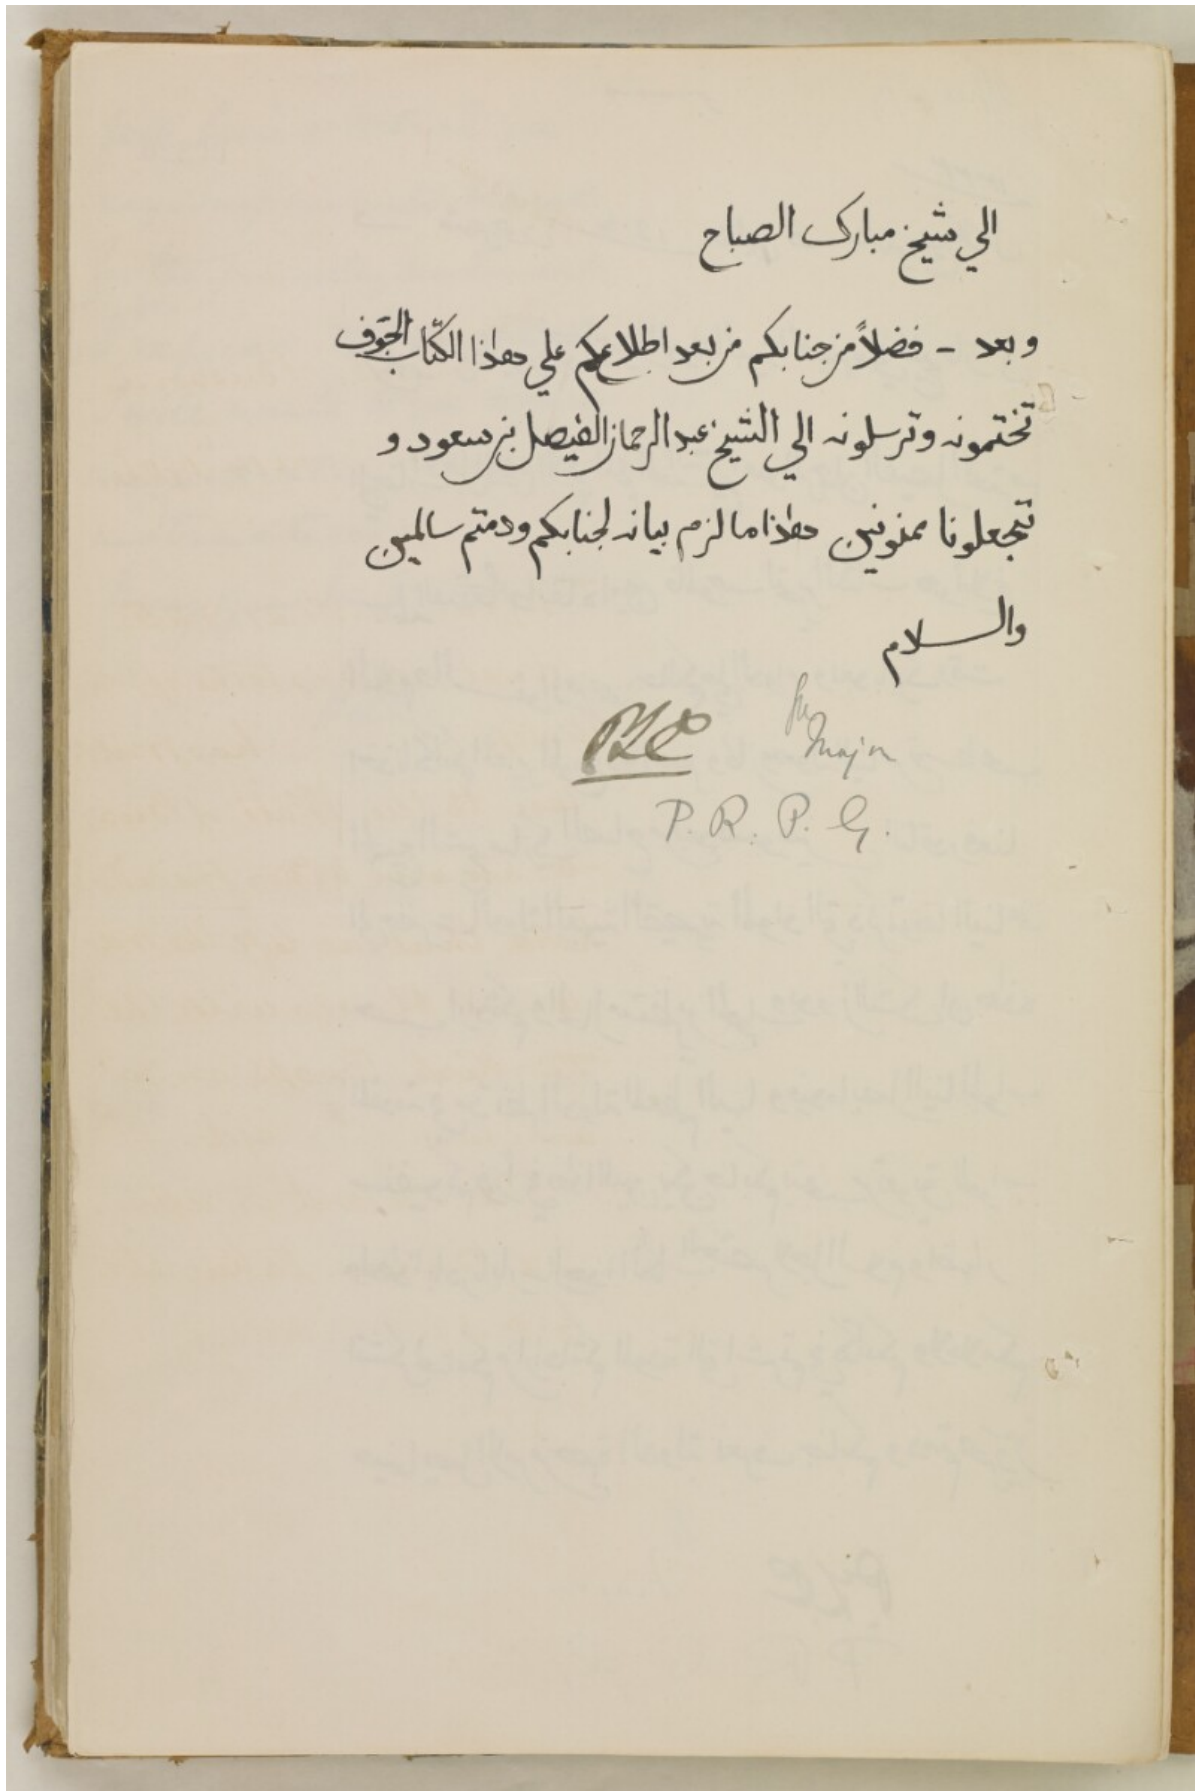 الي شيخ مبارك الصباح
وبعد - فضلاً من جنابكم من بعد اطلاعكم علي هذا الكتاب
تختمونه وترسلونه الي الشيخ عبد الرحمان الفيصل بن سعود و
تجعلونا ممنونين هذا ما لزم بيانه لجنابكم ودمتم سالمين
والسلام
Major
P. R. P. G.